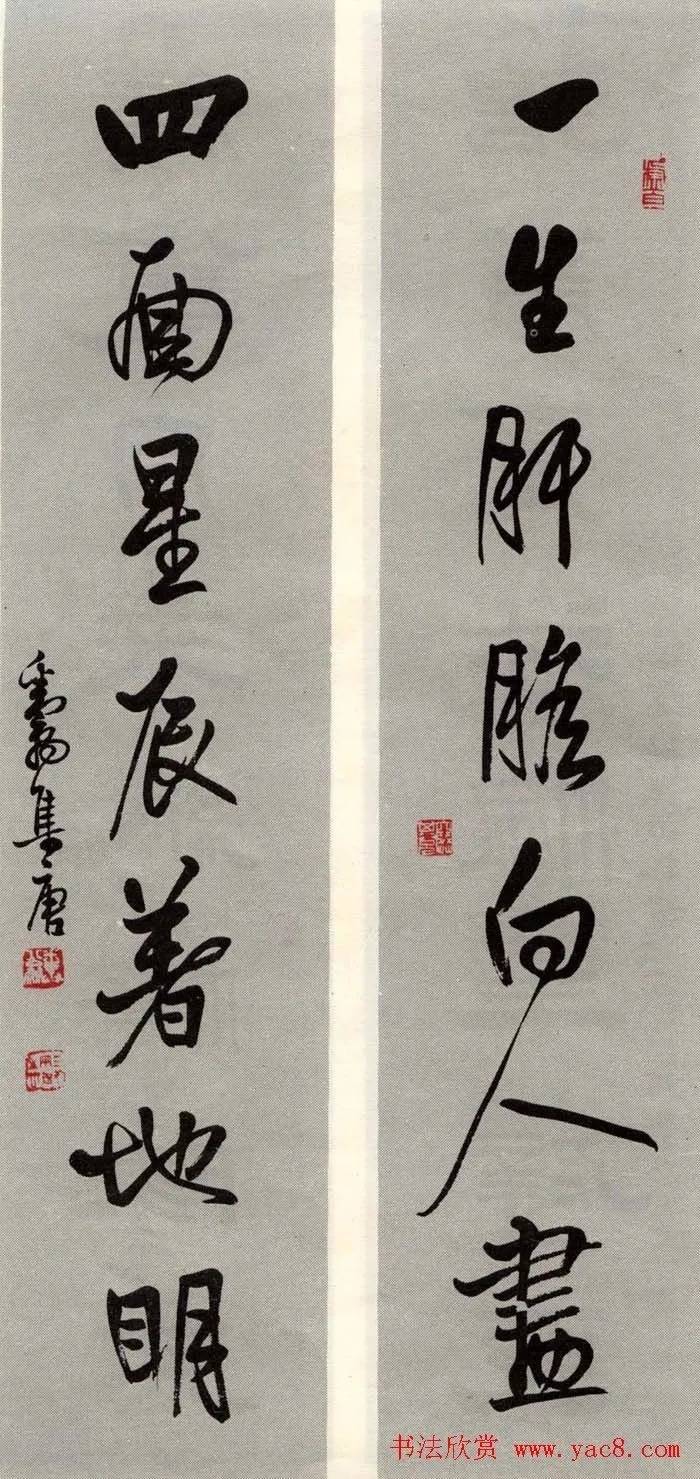 一生肝膽向人盡
四面星辰著地明
集唐
书法欣赏 www.yac8.com